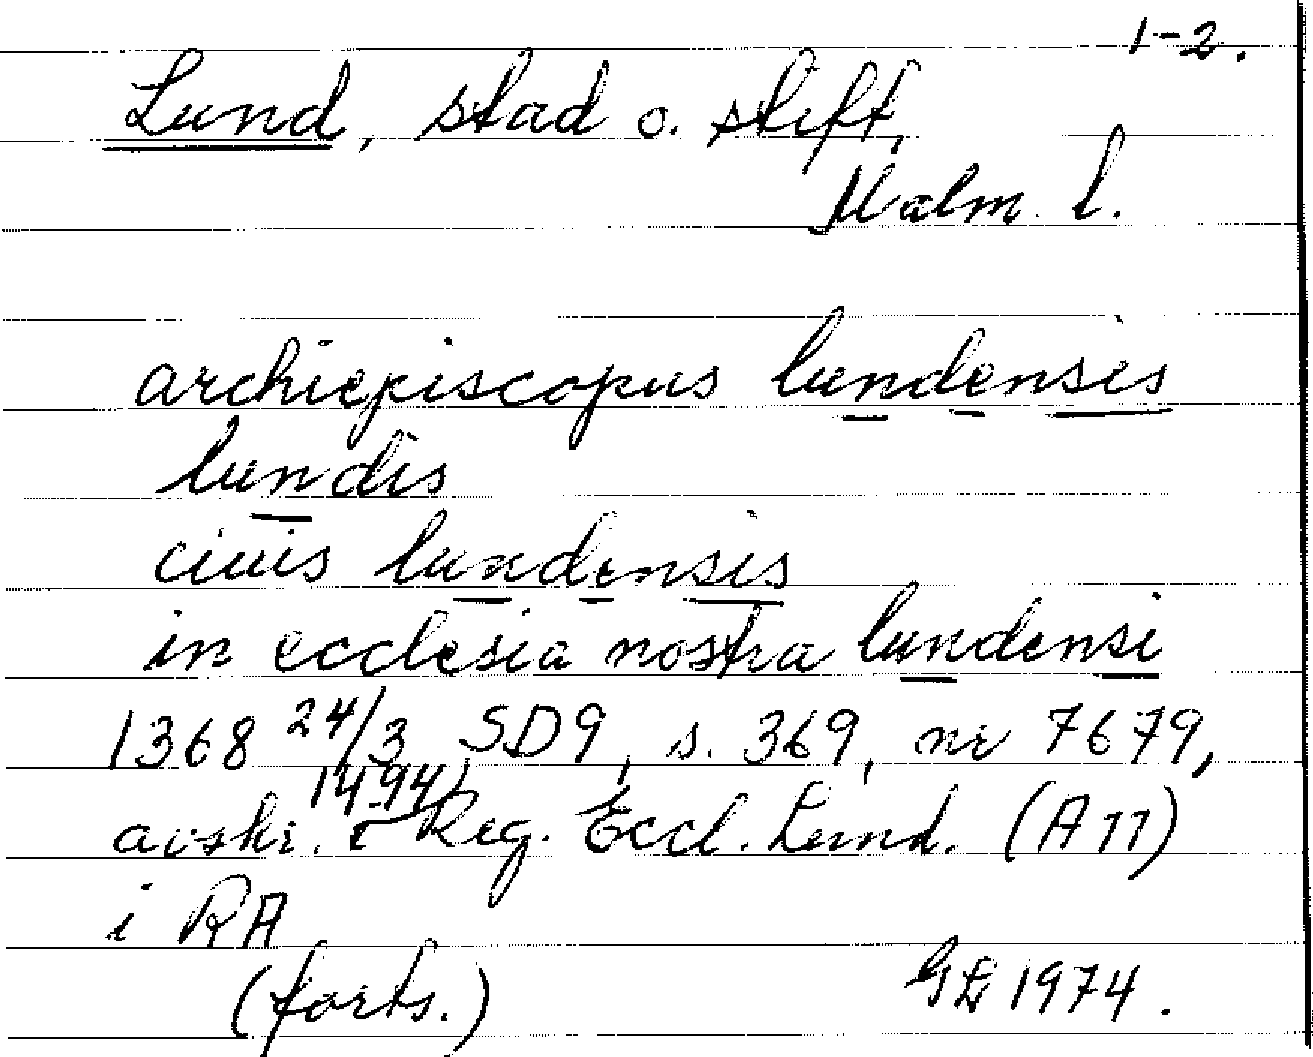 1-2.
Lund, stad o. stift,
Malm. l.
archiepiscopus lundensis
lundis
ciuis lundensis
in ecclesia nostra lundensi
1368 24/3 SD9, s. 369, nr 7679,
1494)
avskr. Reg. Eccl. Lund. (A 11)
i RA
(forts.)
1974.